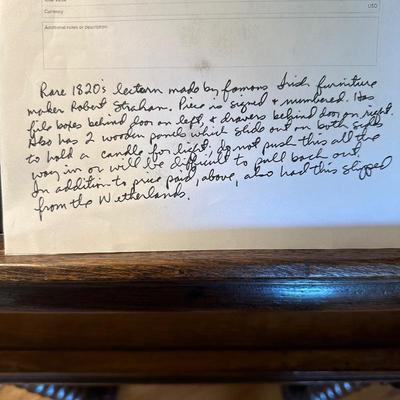 Total Value
Currency
USD
Additional notes or description:
Rare 1820's lectern made by famous Irish furniture
maker Robert Strahan. Piece is signed & numbered. Has
file boxes behind door on left, & drawers behind door on right.
Also has 2 wooden panels which slide out on both sides
to hold a candle for light, do not push this all the
way in or will be difficult to pull back out.
In addition to price paid, above, also had this shipped
from the Netherlands.